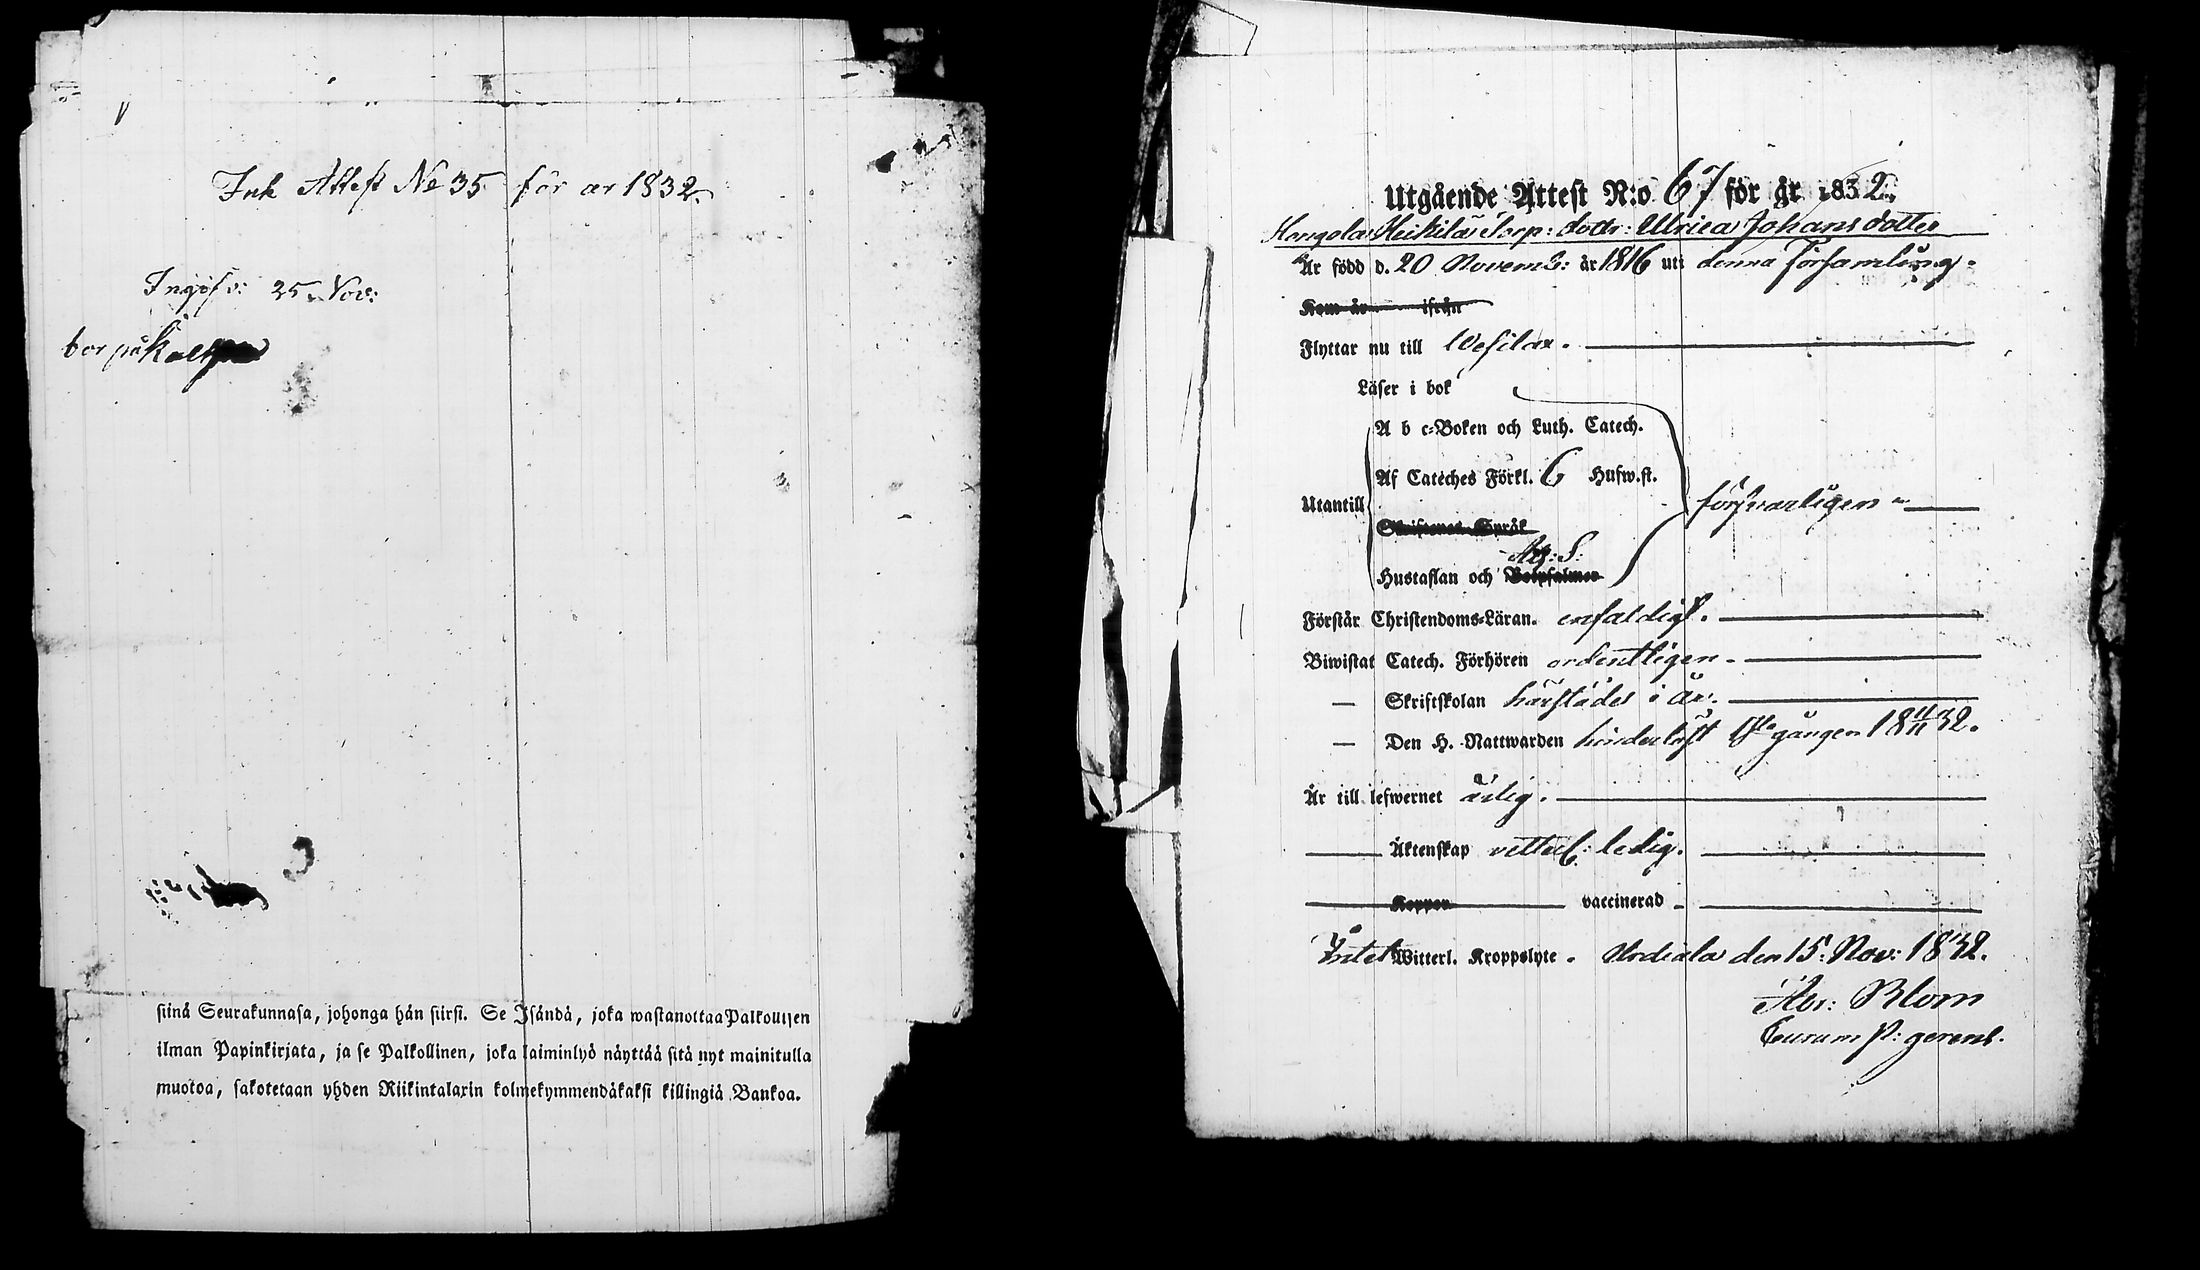 Ink Attest No 35 för år 1832.
Ingifv: 25 Nov:
bor på
siinä Seurakunnasa, johonga hän siirsi. Se Isändä, joka wastanottaa Palkollisen
ilman Papinkirjata, ja se Palkollinen, joka laiminlyö näyttää sitä nyt mainitulla
muotoa, sakotetaan yhden Riikintalarin kolmekymmendäkaksi killingiä Bankoa.
Utgående Attest N:o 67 för år 1832.
Hongola Heikilä Torp: dottr: Ulrica Johansdotter
Är född d. 20 Novemb: år 1816 uti denna Församling.
Kom år ifrån
Flyttar nu till Wesilax.
Läser i bok
A b c-Boken och Luth. Catech.
Af Cateches Förkl. 6 Hufw.st.
Utantill försvarligen
Skriftenes Språk
Ath: S:
Hustaflan och Botpsalmer
Förstår Christendoms-Läran. enfaldigt.
Biwistat Catech. Förhören ordentligen.
— Skriftskolan härstädes i år.
— Den H. Nattwarden hinderlöst 1sta gången 18 4/11 32.
Är till lefwernet ärlig.
Äktenskap vetterl: ledig.
Koppor vaccinerad
Intet Witterl. Kroppslyte. Urdiala den 15 Nov: 1832.
Abr: Blom
Curam P: gerens.